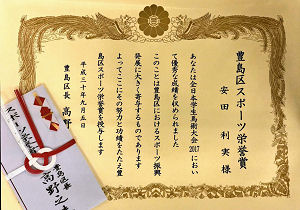 豊島区スポーツ栄誉賞
安田利実様
あなたは全日本学生馬術大会2017におい
て優秀な成績を収められました
このことは豊島区におけるスポーツ振興
発展に大きく寄与するものであります
よってここにその努力と功績をたたえ豊
島区スポーツ栄誉賞を授与します
平成三十年九月五日
豊島区長 高野
スポーツ栄誉
豊島区長
高野之